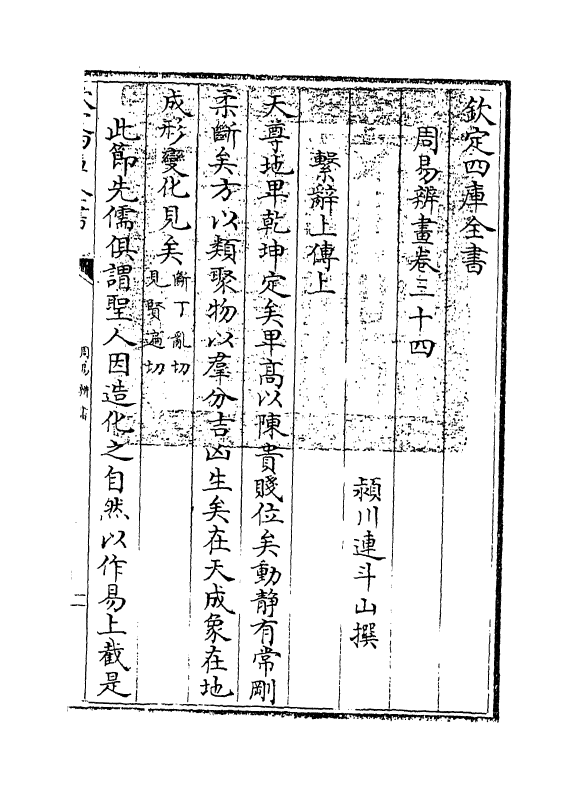 欽定四庫全書
周易辨畫卷三十四
潁川連斗山撰
繫辭上傳上
天尊地卑乾坤定矣卑高以陳貴賤位矣動靜有常剛
柔斷矣方以類聚物以羣分吉凶生矣在天成象在地
成形變化見矣斷丁亂切見賢遍切
此節先儒俱謂聖人因造化之自然以作易上截是
周易辨畫